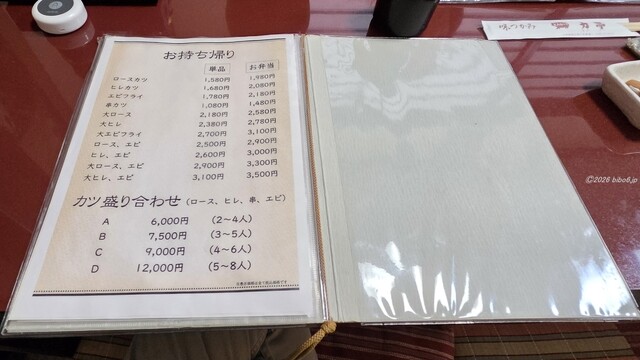 お持ち帰り
単品 お弁当
ロースカツ 1,580円 1,980円
ヒレカツ 1,680円 2,080円
エビフライ 1,780円 2,180円
串カツ 1,080円 1,480円
大ロース 2,180円 2,580円
大ヒレ 2,380円 2,780円
大エビフライ 2,700円 3,100円
ロース、エビ 2,500円 2,900円
ヒレ、エビ 2,600円 3,000円
大ロース、エビ 2,900円 3,300円
大ヒレ、エビ 3,100円 3,500円
カツ盛り合わせ (ロース、ヒレ、串、エビ)
A 6,000円 (2~4人)
B 7,500円 (3~5人)
C 9,000円 (4~6人)
D 12,000円 (5~8人)
©2026 bibo6.jp